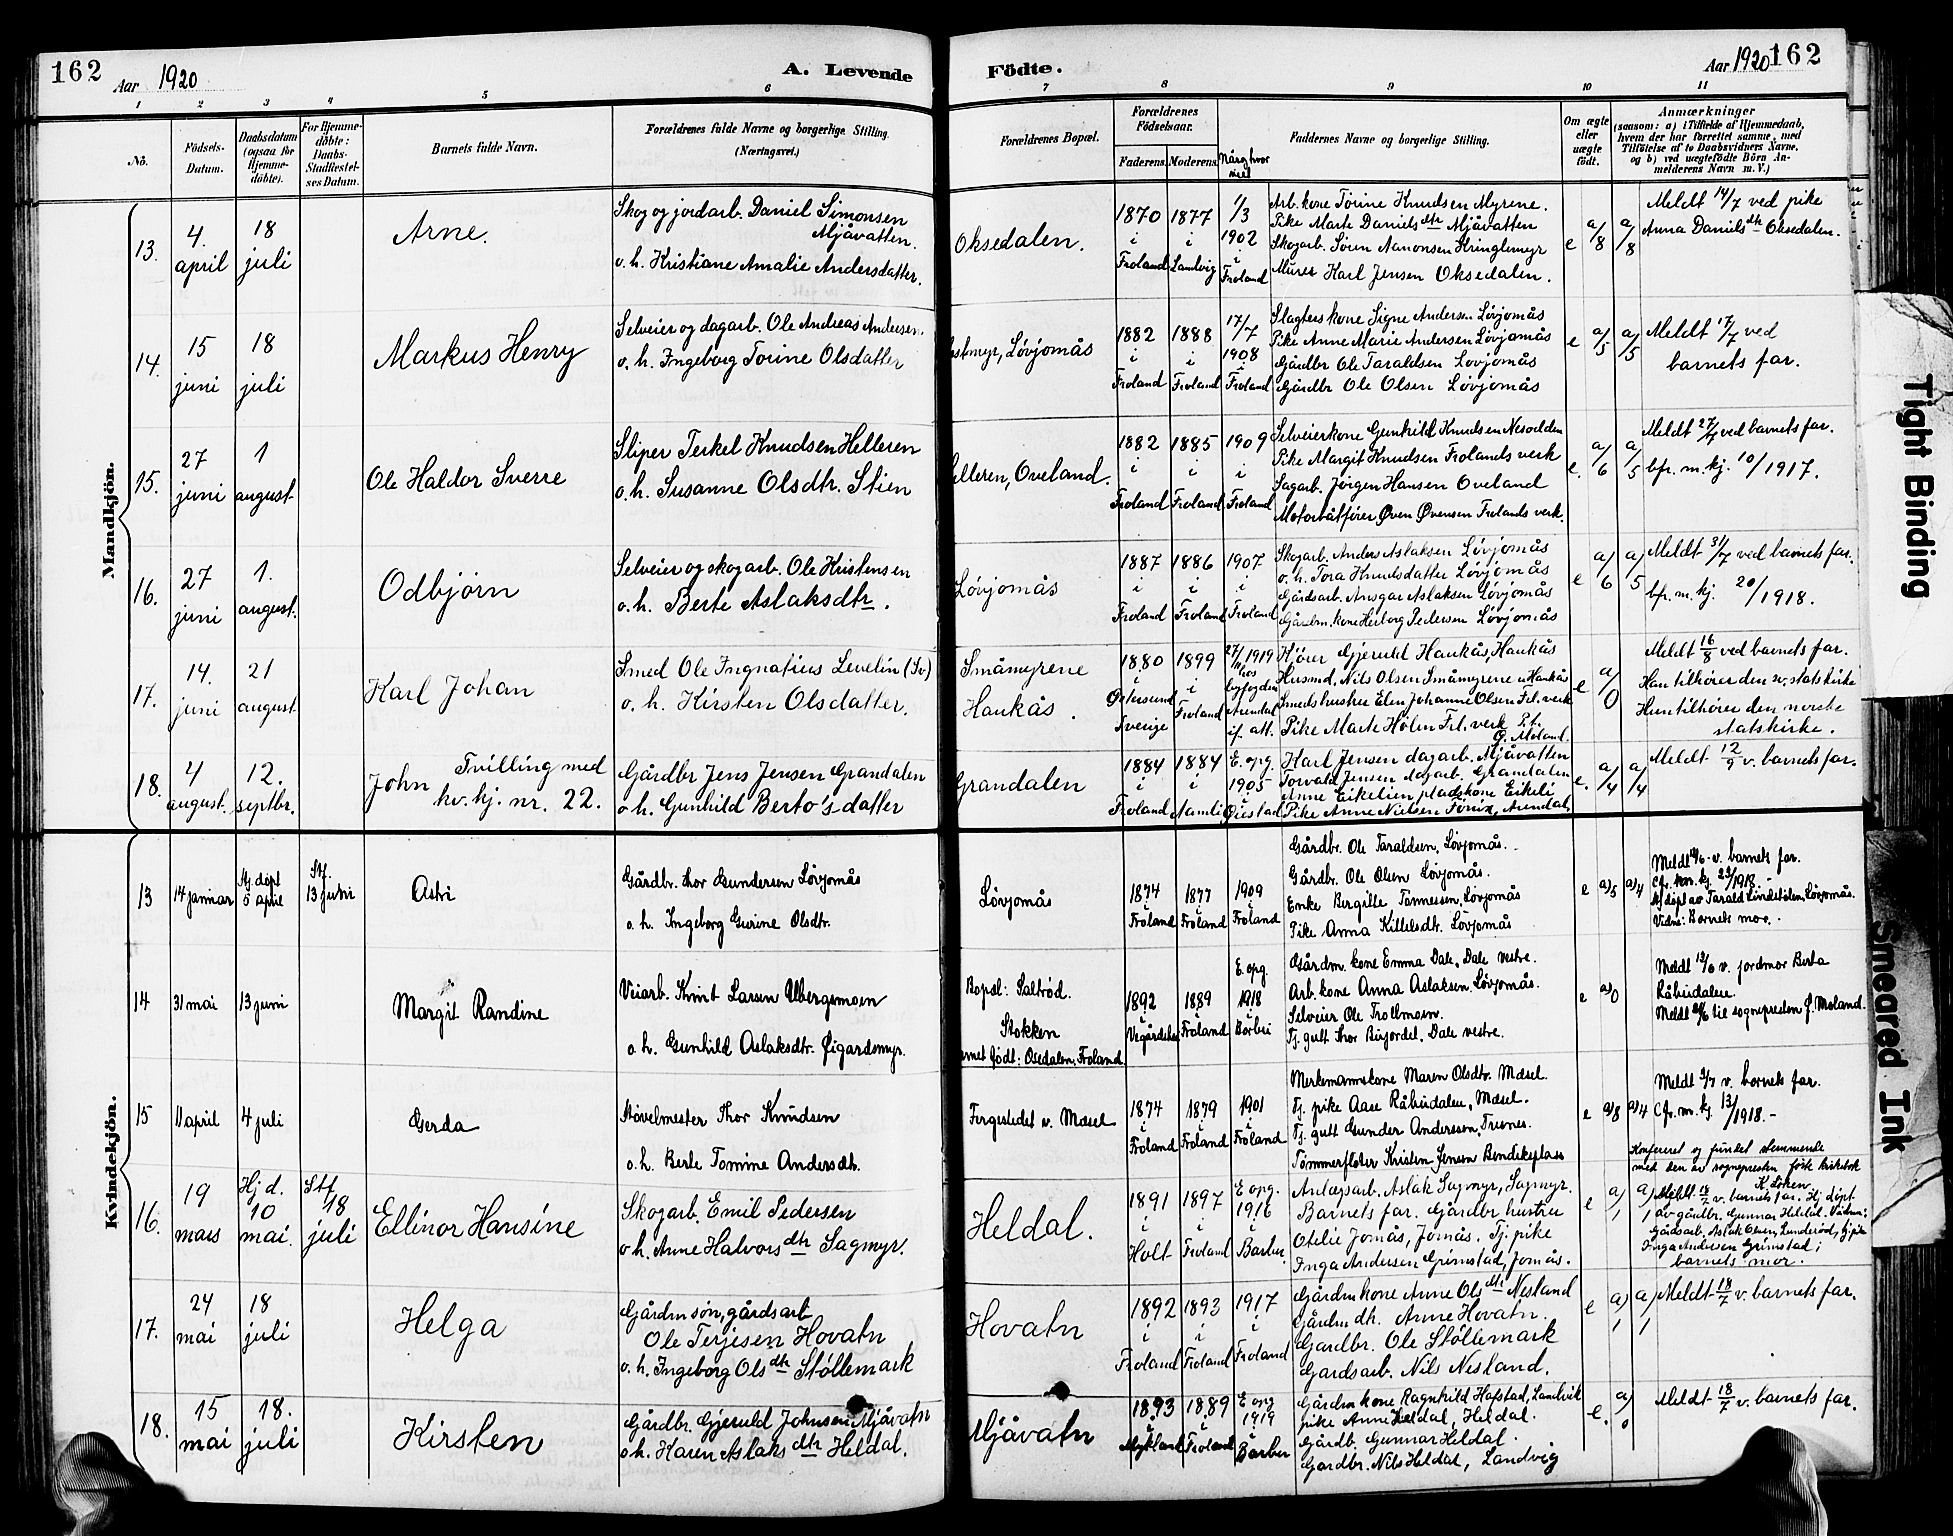 162
Aar 1920
A. Levende
Födte.
Aar 1920
162
1 2 3 4 5 6 7 8 9 10 11
No.
Födsels-
Datum.
Daabsdatum
(ogsaa for
Hjemme-
döbte).
For Hjemme-
döbte:
Daabs-
Stadfæstel-
ses Datum.
Barnets fulde Navn.
Forældrenes fulde Navne og borgerlige Stilling.
(Næringsvei.)
Forældrenes Bopæl.
Forældrenes
Födselsaar.
Faderens. Moderens.
Når og hvor
viet
Faddernes Navne og borgerlige Stilling.
Om ægte
eller
uægte
födt.
Anmærkninger
(saasom: a) i Tilfælde af Hjemmedaab,
hvem der har forrettet samme, med
Tilföielse af to Daabsvidners Navne,
og b) ved uægtefödte Börn An-
melderens Navn m. V.)
Mandkjön.
13.
4.
april
18
juli
Arne.
Skog og jordarb. Daniel Simonsen
Mjåvatten.
o. h. Kristiane Amalie Andersdatter.
Oksedalen.
1870 i Froland
1877 i Landvig
1/3 1902 i Froland
Arb. kone Tørine Knudsen Myrene.
Pike Marte Daniels dtr Mjåvatten
Skogarb. Søren Aanonsen Kringlemyr
Murer Karl Jensen Oksedalen.
e
a/8
a/8
Meldt 14/7 ved pike
Anna Daniels dtr Oksedalen.
14.
15
juni
18
juli
Markus Henry
Selveier og dagarb. Ole Andreas Andersen.
o. h. Ingeborg Torine Olsdatter
stmyr, Løvjomås
1882 i Froland
1888 i Froland
17/7 1908 i Froland
Slagters kone Signe Andersen Løvjomås
Pike Anne Marie Andersen Løvjomås
Gårdbr Ole Taraldsen Løvjomås
Gårdbr Ole Olsen Løvjomås
e
a/5
a/5
Meldt 17/7 ved
barnets far.
15.
27
juni
1
august
Ole Haldor Sverre
Sliper Terkel Knudsen Helleren
o. h. Susanne Olsdtr. Stien
elleren, Oveland.
1882 i Froland
1885 i Froland
1909 i Froland
Selveierkone Gunhild Knudsen Nesodden
Pike Margit Knudsen Frolands verk
Sagarb. Jørgen Hansen Oveland
Motorbåtfører Øven Øvensen Frolands verk.
e.
a/6
a/5
Meldt 27/7 ved barnets far.
bfr. m. kj. 10/1917.
16.
27
juni
1.
august.
Odbjørn
Selveier og skogarb. Ole Kristensen
o. h. Berte Aslaksdtr.
Løvjomås
1887 i Froland
1886 i Froland
1907 i Froland
Skogarb. Anders Aslaksen Løvjomås
o. h. Tora Knudsdatter Løvjomås
Gårdsarb. Ansgar Aslaksen Løvjomås
Gårdm. kone Herborg Pedersen Løvjomås
e
a/6
a/5
Meldt 31/7 ved barnets far.
bfr. m. kj. 20/1918.
17.
14.
juni
21
august
Karl Johan
Smed Ole Ingnatius Levelin (Sv)
o. h. Kirsten Olsdatter.
Småmyrene
Haukås.
1880 i Østersund Sverige
1899 i Froland
1919 hos byfogden Arendal if. att.
Hjører Gjeruld Haukås, Haukås
Husmd. Nils Olsen Småmyrene u Haukås
Smeds hustru Elen Johanne Olsen Frl. verk
Pike Marte Hølen Frl. verk P.t.
Ø. Moland.
e
a/0
Meldt 16/8 ved barnets far.
Han tilhører den sv. statskirke
Hun tilhører den norske
statskirke.
18.
4
august.
12.
septbr.
John Tvilling med
kv. kj. nr. 22.
Gårdbr Jens Jensen Grandalen
o. h. Gunhild Berto's datter
Grandalen
1884 i Froland
1884 i Aamli
E. opg. 1905 i Øiestad
Karl Jensen dagarb. Mjåvatten
Torvald Jensen dagarb. Grandalen
Anne Eikelien pladskone Eikeli
Pike Anne Nielsen Fönix, Arendal
e.
a/4
a/4
Meldt 12/9 v. barnets far.
Kvindekjön.
13
14 januar
Hj. døpt
5 april
Stf.
13 juni
Astri
Gårdbr. Thor Gundersen Løvjomås
o. h. Ingeborg Gurine Olsdtr.
Løvjomås
1874 i Froland
1877 i Froland
1909 i Froland
Gårdbr. Ole Taraldsen, Løvjomås.
Gårdbr. Ole Olsen Løvjomås.
Enke Birgitte Tønnessen, Løvjomås
Pike Anna Killelsdtr. Løvjomås
e
a/5
a/4
Meldt v. barnets far.
Cfr. kv. kj.
Hj døpt av Tarald Lindtstølen, Løvjomås.
Vidne: Barnets mor.
14
31 mai
13 juni
Margit Randine
Veiarb. Knut Larsen Ulbergsmoen
o. h. Gunhild Aslaksdtr. Sigardsmyr.
Bopæl: Saltrød.
Stokken
rnet født: Osedalen, Froland
1892 i Vegårdshei
1889 i Froland
E. opg. 1918 i Borbu
Gårdm. kone Emma Dale, Dale vestre.
Arb. kone Anna Aslaksen, Løvjomås.
Selveier Ole Trollmoen.
Tj. gutt Thor Bujordet, Dale vestre.
e
a/0
Meldt 12/6 v. jordmor Berta
Råbudalen.
Meldt til sognepresten Ø. Moland.
15
11 april
4 juli
Gerda
Støvelmester Thor Knudsen
o. h. Berte Tomine Andersdtr.
Fergestedet v. Mosel
1874 i Froland
1879 i Froland
1901 i Froland
Merkemannskone Maren Olsdtr. Mosel.
Tj. pike Aase Råbudalen, Mosel.
Tj. gutt Gunder Anderssen, Trosnes.
Tømmerfløter Kristen Jensen Bendiksplass
e
a/8
a/4
Meldt 3/7 v. barnets far.
Cfr. m. kj. 13/1918.-
Konfereret og fundet stemmende
med den av sognepresten førte kirkebok
K. Loken
16.
19
mars
Hj d.
10
mai.
Stf
18
juli
Ellinor Hansine
Skogarb. Emil Pedersen
o. h. Anne Halvors dtr Sagmyr.
Heldal.
1891 i Holt
1897 i Froland
E opg. 1916 i Barbu
Anlægsarb. Aslak Sagmyr, Sagmyr.
Barnets far. Gårdbr hustru
Otelie Jomås, Jomås. Tj. pike
Inga Andersen Grimstad, Jomås.
e
a/1
a/1
Meldt 18/7 v. barnets far. Hj døpt
av gårdbr. Gunnar Heldal. Vidner:
Gårdsarb. Aslak Olsen, Lunderød, tj. pike
Inga Andersen Grimstad;
barnets mor.
17.
24
mai
18
juli
Helga
Gårdm søn, gårdsarb
Ole Terjesen Hovatn
o. h. Ingeborg Ols dtr Støllemark
Hovatn
1892 i Froland
1893 i Froland
1917 i Froland
Gårdm kone Anne Ols dtr Nesland
Gårdm dtr. Anne Hovatn.
Gardbr. Ole Støllemark
Gardsarb. Nils Nesland.
e
a/1
a/1
Meldt 18/7 v. barnets far.
18.
15
mai
18.
juli
Kirsten
Gårdbr. Gjeruld Johnsen Mjåvatn
o. h. Karen Aslaks dtr Heldal.
Mjåvatn
1893 i Mykland
1889 i Froland
E opg 1919 i Barbu
Gårdm kone Ragnhild Hafstad, Landvik
pike Anne Heldal, Heldal.
Gårdb. Gunnar Heldal.
Gardbr. Nils Heldal, Landvig
e.
a/0
Meldt 18/7 v. barnets far.
Tight Binding
Smeared Ink